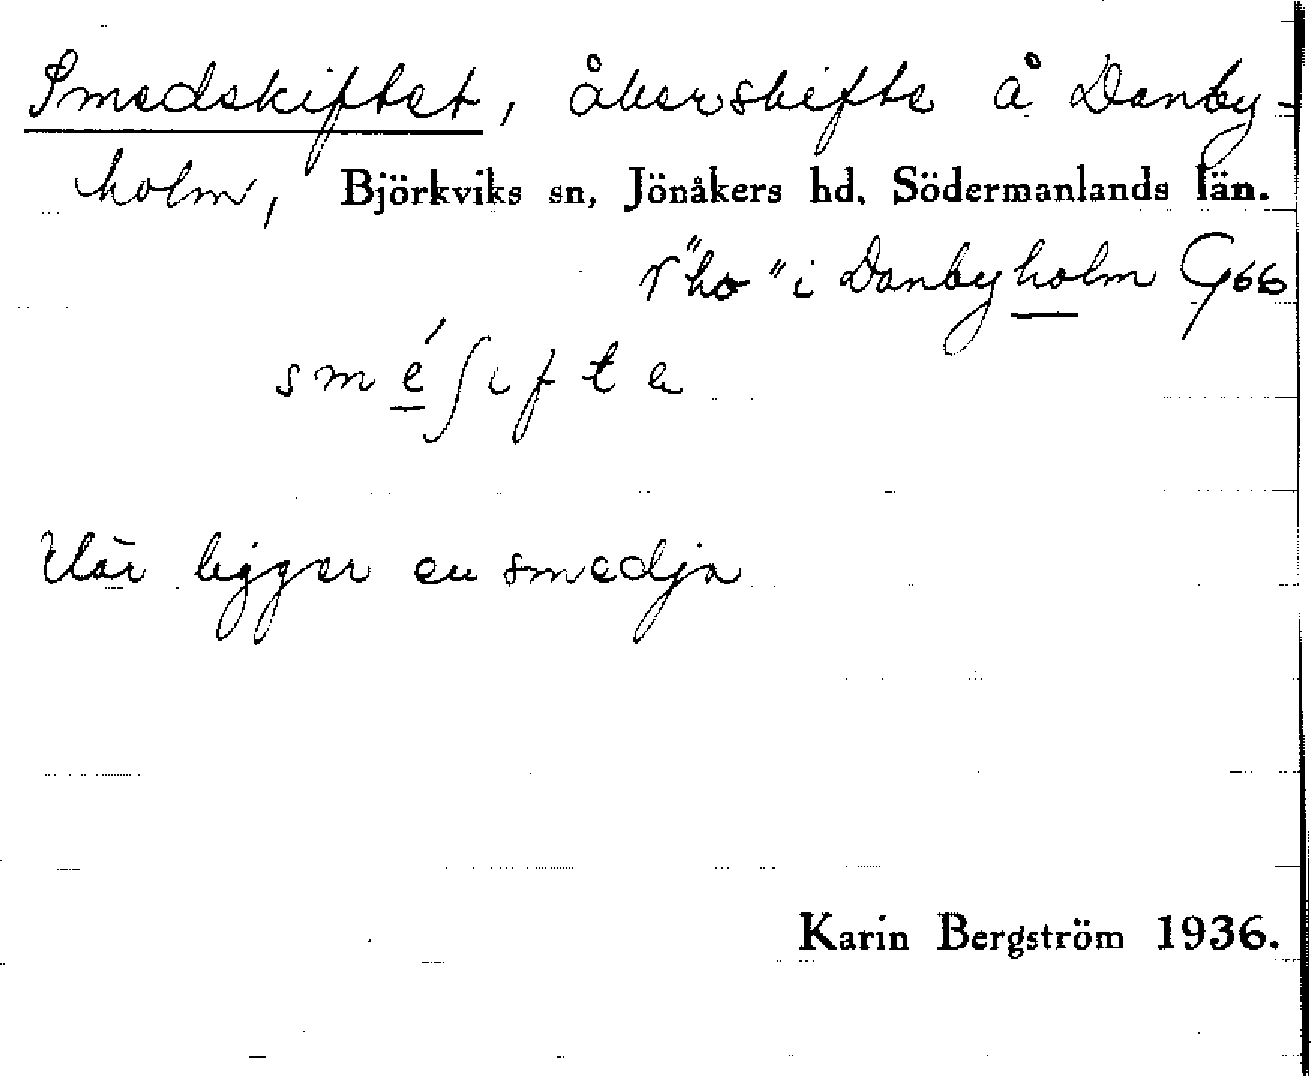 Smedskiftet, åkerskifte å Danby-
holm, Björkviks sn, Jönåkers hd, Södermanlands län.
r "ho" i Danbyholm G66
smé∫ifte
Här ligger en smedja
Karin Bergström 1936.